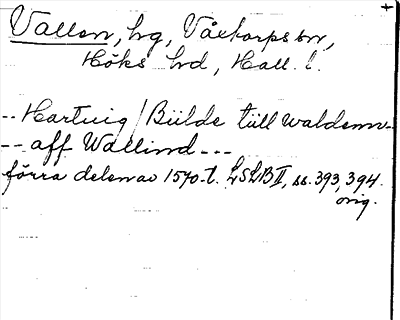 Vallen, hg, Våxtorps sn,
Höks hd, Hall. l.
-- Hartuig Biilde tüll waldenn-
-- aff Wallind ---
förra delen av 1570-t. LSLB II, ss. 393, 394.
orig.